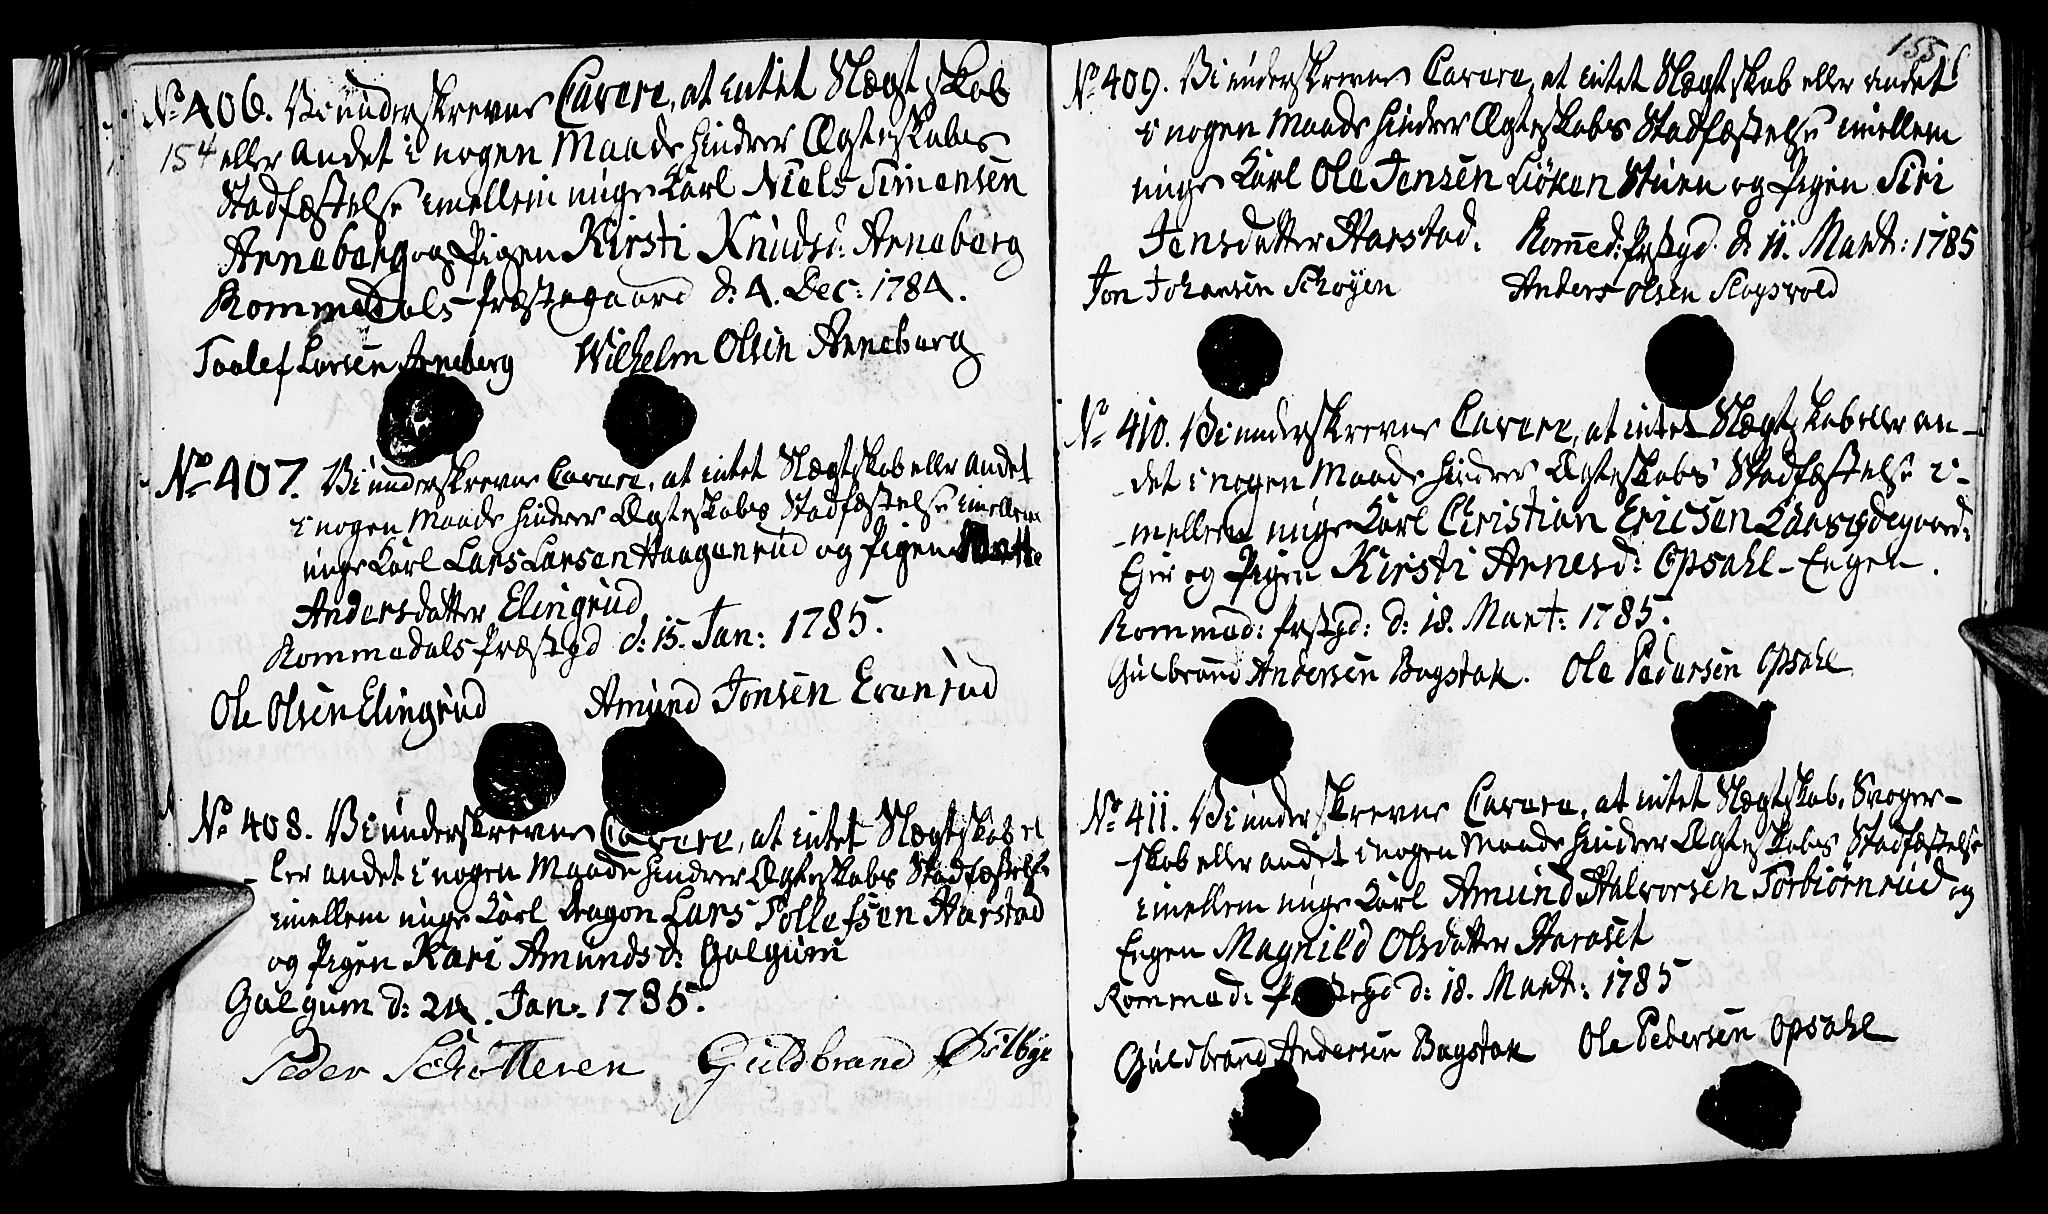 No 406. Vi underskrevne Cavere, at intet Slægtskab
154 eller andet i nogen Maade hindrer Ægteskabs
Stadfæstelse imellem unge Karl Niels Simensen
Arneberg og Pigen Kirsti Knudsd: Arneberg
Rommedals Præstegaard d: 4. Dec: 1784.
Toolef Larsen Arneberg Wilhelm Olsen Arneberg
No 407. Vi underskrevne Cavere, at intet Slægtskab eller andet
i nogen Maade hindrer Ægteskabs Stadfæstelse imellem
unge Karl Lars Larsen Haagenrud og Pigen
Andersdatter Elingrud
Rommedals Præstgd d: 15. Jan: 1785.
Ole Olsen Elingrud Amund Jonsen Evenrud
No 408. Vi underskrevne Cavere, at intet Slægtskab el
- ler andet i nogen Maade hindrer Ægteskabs Stadfæstelse
imellem unge Karl Dragon Lars Tollefsen Harstad
og Pigen Kari Amundsd: Galgum
Galgum d: 24. Jan: 1785.
Peder Schøtteren Guldbrand Dølbye
155
No 409. Vi underskrevne Cavere, at intet Slægtskab eller andet
i nogen Maade hindrer Ægteskabs Stadfæstelse imellem
unge Karl Ole Jensen Løken Stuen og Pigen Siri
Jensdatter Harstad. Rommed: Præstgd. d: 11. Mart: 1785
Jon Johansen Schøyen Anders Olsen Slogsvold
No 410. Vi underskrevne Cavere, at intet Slægtskab eller an-
- det i nogen Maade hindrer Ægteskabs Stadfæstelse i-
- mellem unge Karl Christian Ericsen
Eier og Pigen Kirsti Arnesd: Opsahl-Engen.
Rommed: Prstgd: d: 18. Mart: 1785.
Gulbrand Andersen Bagstak. Ole Pedersen Opsahl
No 411. Vi underskrevne Cavere, at intet Slægtskab, Svoger-
- skab eller andet i nogen Maade hindrer Ægteskabs Stadfæstelse
imellem unge Karl Amund Halvorsen Torbiørnrud og
Engen Magnild Olsdatter Haraset
Rommed: d: 18. Mart: 1785
Guldbrand Andersen Bagstak Ole Pedersen Opsahl